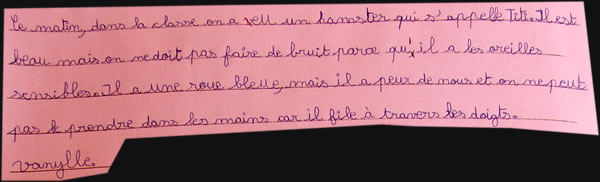 Le matin, dans la classe on a vu un hamster qui s'appelle Titi. Il est
beau mais on ne doit pas faire de bruit parce qu'il a les oreilles
sensibles. Il a une roue bleue, mais il a peur de nous et on ne peut
pas le prendre dans les mains car il file à travers les doigts.
vanylle.